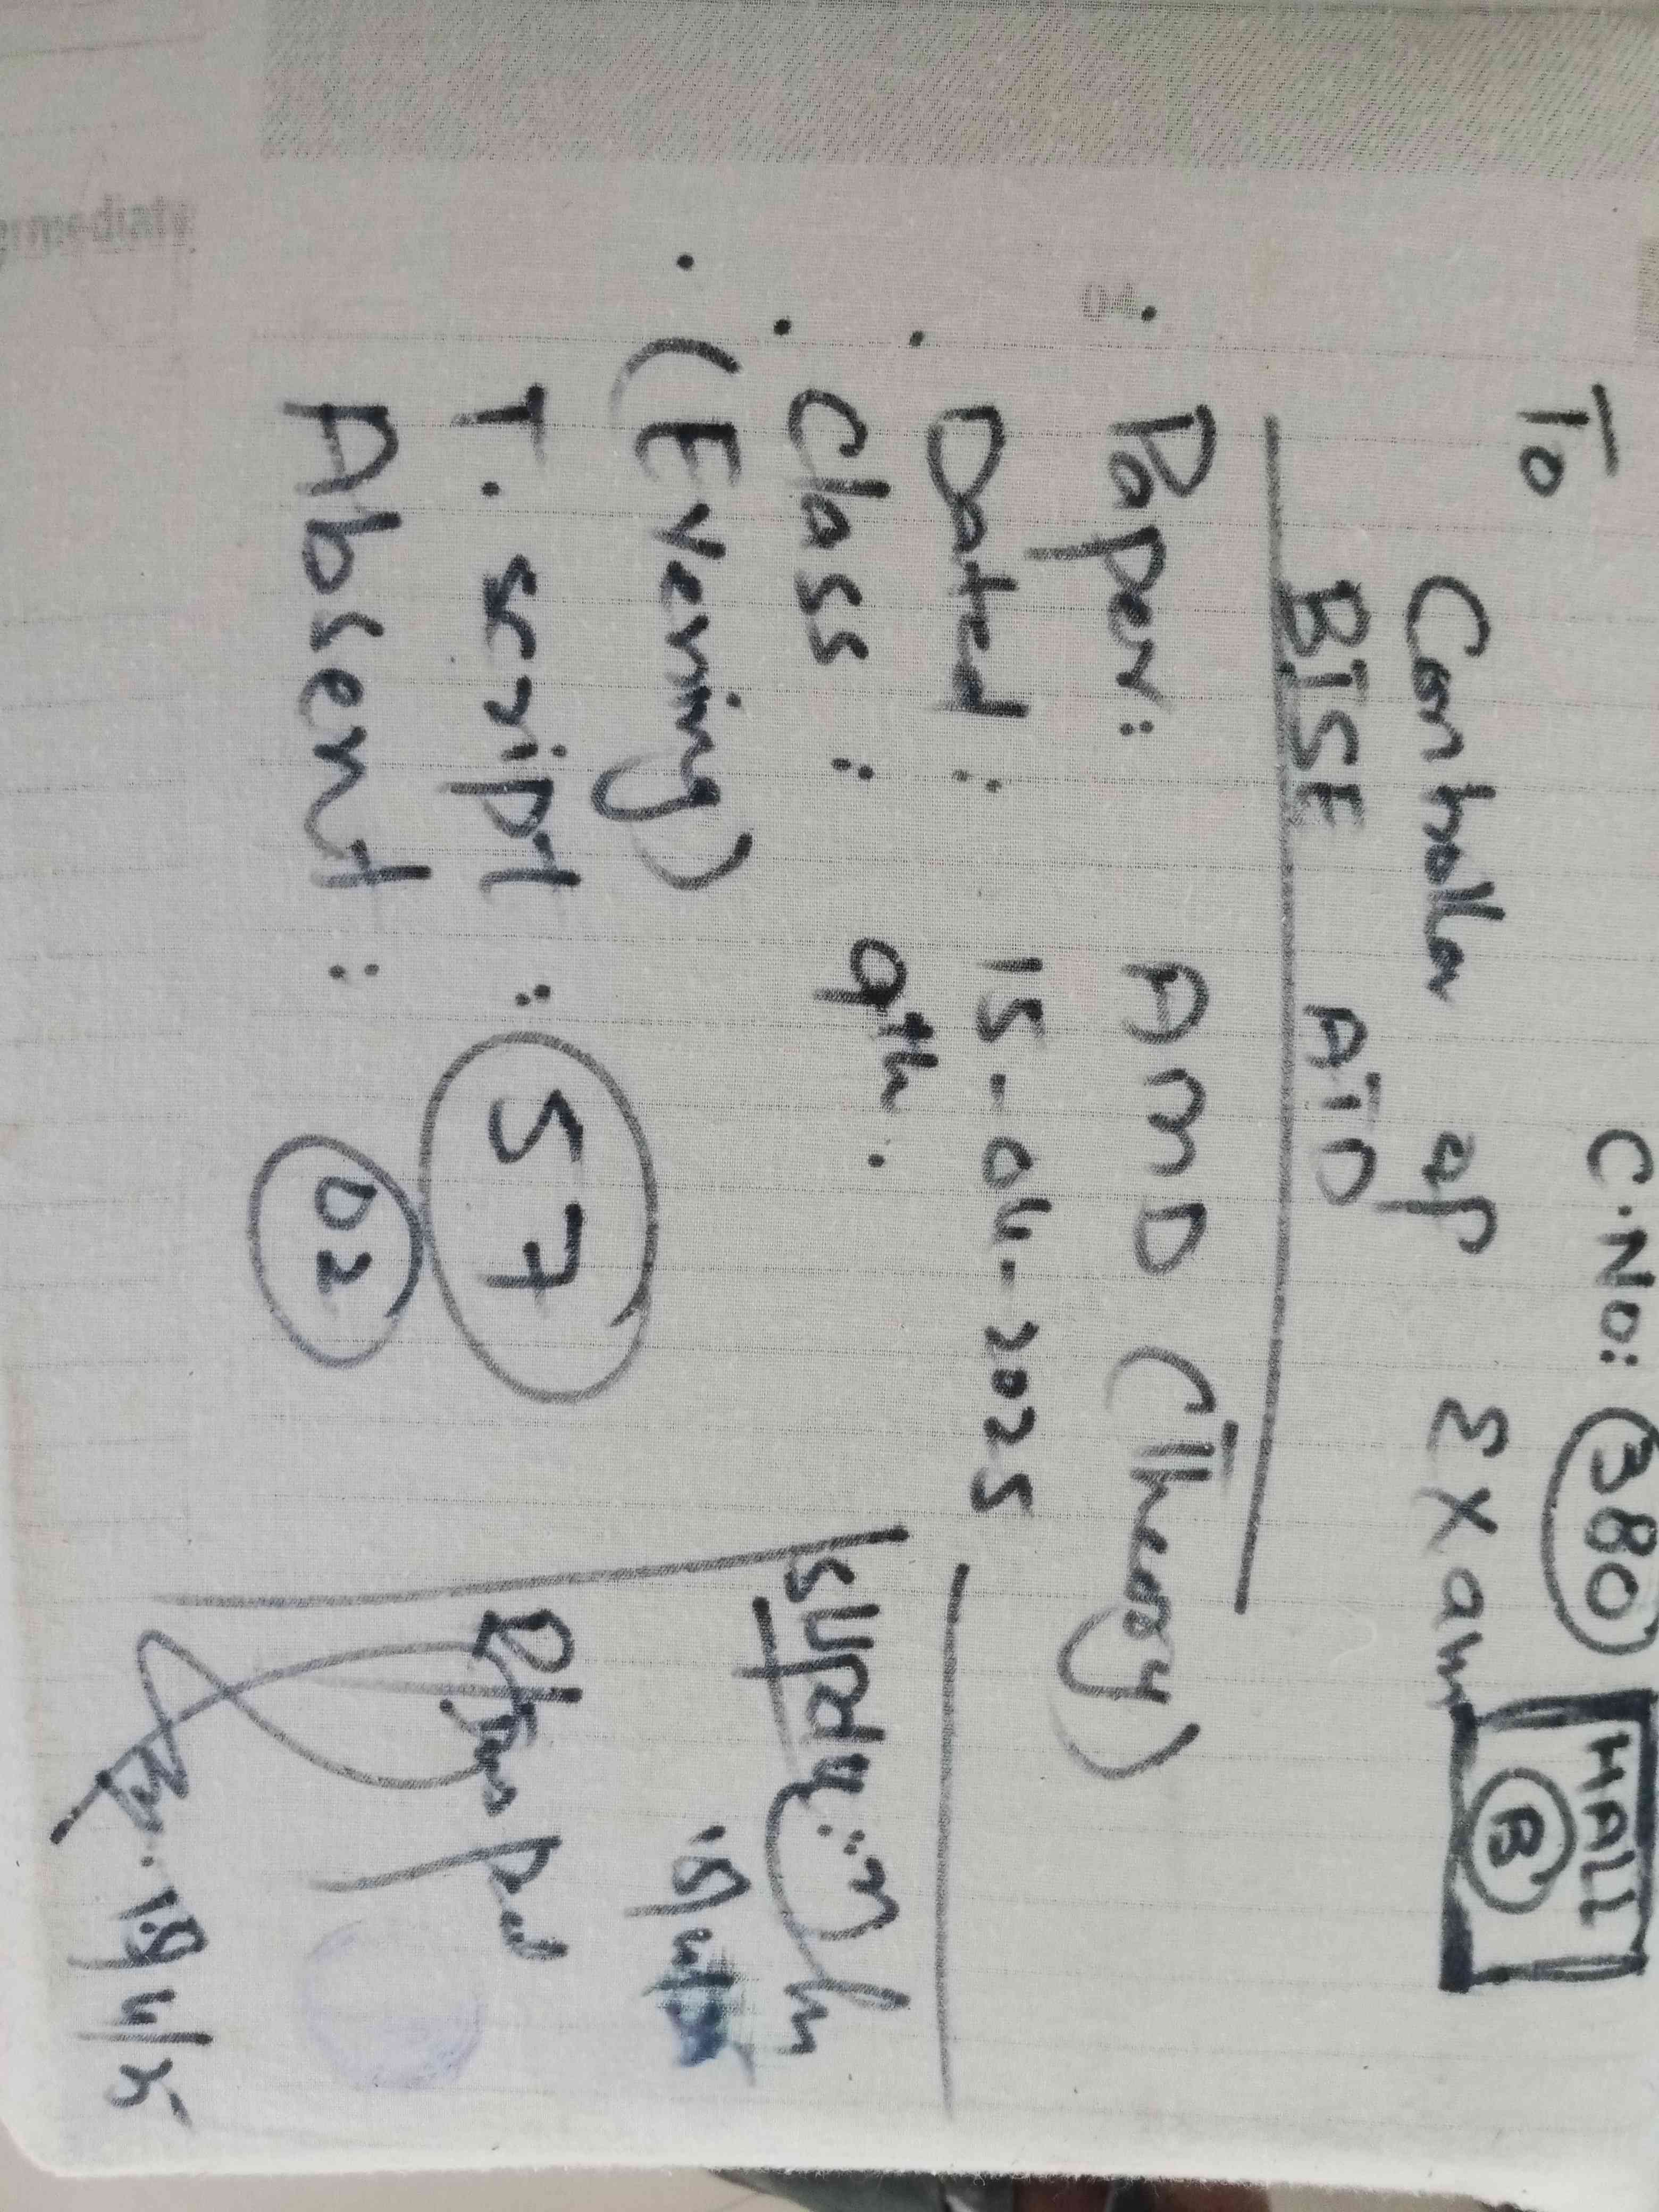 C.No: 380 HALL
B
To
Controller of Exam
BISE ATD
Paper: AMD (Theory)
Dated: 15-04-2025
Class: 9th.
(Evening)
T. script: 57
Absent: 02
Supdt:
15/4/25
04